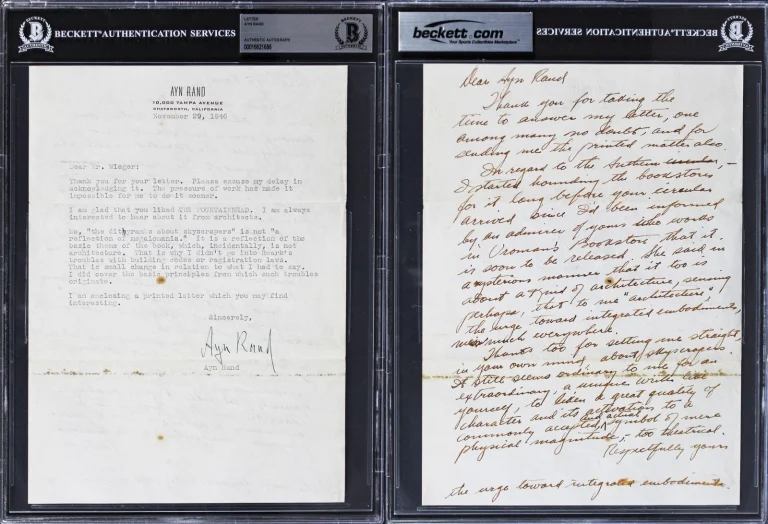 BECKETT AUTHENTICATION SERVICES
LETTER
AYN RAND
AUTHENTIC AUTOGRAPH
AYN RAND
10,000 TAMPA AVENUE
CHATSWORTH, CALIFORNIA
November 29, 1946
Dear Mr. Wieger:
Thank you for your letter. Please excuse my delay in
acknowledging it. The pressure of work has made it
impossible for me to do it sooner.
I am glad that you liked THE FOUNTAINHEAD. I am always
interested to hear about it from architects.
No, "the dithyrambs about skyscrapers" is not "a
reflection of megalomania." It is a reflection of the
basic theme of the book, which, incidentally, is not
architecture. That is why I didn't go into Roark's
troubles with building codes or registration laws.
That is small change in relation to what I had to say.
I did cover the basic principles from which such troubles
originate.
I am enclosing a printed letter which you may find
interesting.
Sincerely,
Ayn Rand
Ayn Rand
beckett.com
Your Sports Collectibles Marketplace
BECKETT AUTHENTICATION SERVICES
Dear Ayn Rand
Thank you for taking the
time to answer my letter, one
among many no doubt, and for
sending me the printed matter also.
In regard to the Anthem circular, –
I started hounding the bookstores
for it long before your circular
arrived since I'd been informed
by an admirer of yours who works
in Vroman's Bookstore that it
is soon to be released. She said in
a mysterious manner that it too is
about a kind of architecture, sensing
perhaps, that to me "architecture,"
the urge toward integrated embodiments,
much everywhere.
Thanks too for setting me straight,
in your own mind, about skyscrapers.
It still seems ordinary to me for an
extraordinary, a unique writer like
yourself, to liken a great quality of
character and its activation to a
and actual
commonly accepted symbol of mere
physical magnitude, – too theatrical.
Respectfully yours
the urge toward integrated embodiments.